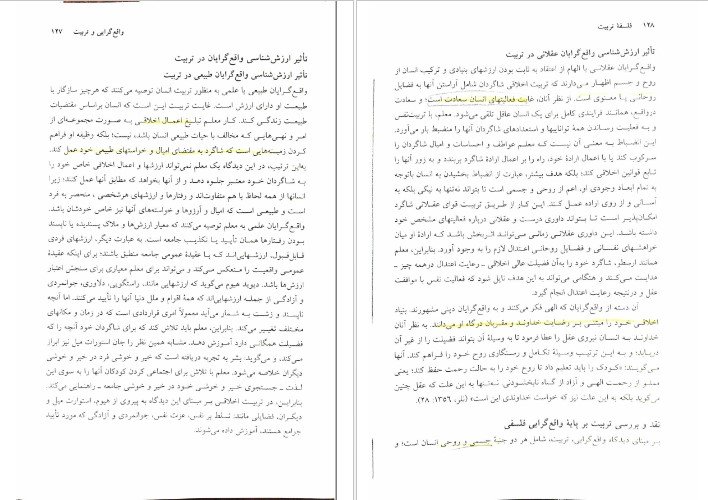 واقع‌گرایی و تربیت ۱۲۷
تأثیر ارزش‌شناسی واقع‌گرایان در تربیت
تأثیر ارزش‌شناسی واقع‌گرایان طبیعی در تربیت
واقع‌گرایان طبیعی یا علمی به منظور تربیت انسان توصیه می‌کنند که هرچیز سازگار با
طبیعت او دارای ارزش است. غایت تربیت این است که انسان براساس مقتضیات
طبیعت زندگی کند. کار معلم تبلیغ اعمال اخلاقی به صورت مجموعه‌ای از
امر و نهی‌هایی که مخالف با حیات طبیعی انسان باشد، نیست؛ بلکه وظیفه او فراهم
کردن زمینه‌هایی است که شاگرد به مقتضای امیال و خواستهای طبیعی خود عمل کند.
به‌این ترتیب، در این دیدگاه یک معلم نمی‌تواند ارزشها و اعمال اخلاقی خاص خود را
به شاگردان خود معتبر جلوه دهد و از آنها بخواهد که مطابق آنها عمل کنند؛ زیرا
انسانها از همه لحاظ با هم متفاوت‌اند و رفتارها و ارزشهای هرشخصی، منحصر به فرد
است و طبیعی است که امیال و آرزوها و خواسته‌های آنها نیز خاص خودشان باشد.
واقع‌گرایان علمی به معلم توصیه می‌کنند که معیار ارزش‌ها و ملاک پسندیده یا ناپسند
بودن رفتارها همان تأیید یا تکذیب جامعه است. به عبارت دیگر، ارزشهای فردی
قابل‌قبول، ارزشهایی‌اند کـه با عقیدۀ عمومی جامعه منطبق باشند؛ برای اینکه عقیدۀ
عمومی واقعیت را منعکس می‌کند و می‌تواند برای معلم معیاری برای سنجش اعتبار
ارزش‌ها باشد. دیوید هیوم می‌گوید که ارزشهایی مانند، راستگویی، دلاوری، جوانمردی
و آزادگی از جمله ارزشهایی‌اند که همۀ اقوام و ملل دنیا آنها را تأیید می‌کنند. اما آنچه
ناپسند و زشت به شمار می‌آید معمولاً امری قراردادی است که در زمان و مکانهای
مختلف تغییر می‌کند. بنابراین، معلم باید تلاش کند که برای شاگردان خود آنچه را که
همگانی قبول دارد آموزش دهد. مشابه همین نظر را جان استورات میل نیز ابراز
می‌کند، و می‌گوید: بشر به تجربه دریافته است که خیر و خوشی فرد در خیر و خوشی
دیگران خلاصه می‌شود. معلم با تلاش برای اجتماعی کردن کودکان آنها را به سوی این
لذت ـ جستجوی خیر و خوشی خود در خیر و خوشی جامعه ـ راهنمایی می‌کند.
بنابراین، در تربیت اخلاقی بر مبنای این دیدگاه به پیروی از هیوم، استوارت میل و
دیگران، فضایلی مانند: تسلط بر نفس، عزت نفس، جوانمردی و آزادگی که مورد تأیید
جوامع هستند، آموزش داده می‌شوند.
۱۲۸ فلسفۀ تربیت
تأثیر ارزش‌شناسی واقع‌گرایان عقلانی در تربیت
واقع‌گرایان عقلانـی با الهام از اعتقاد به ثابت بودن ارزشهای بنیادی و ترکیب انسان از
روح و جسم اظهار می‌دارند که تربیت اخلاقی شاگردان شامل آراستن آنها به فضایل
روحانی یا معنوی است. از نظر آنان، غایت فعالیتهای انسان سعادت است؛ و سعادت
درواقع، همانند فرایندی کامل برای یک انسان عاقل تلقی می‌شود. معلم با تربیت‌نفس
و به فعلیت رساندن همۀ تواناییها و استعدادهای شاگردان آنها را منضبط بار می‌آورد.
این انضباط به معنی آن نیست کـه معلم عواطف و احساسات و امیال شاگردان را
سرکوب کند یا با اعمال ارادۀ خود، راه را بر اعمال ارادۀ شاگرد بربندد و به زور آنها را
تابع قوانین اخلاقی کند؛ بلکه هدف بیشتر، عبارت از انضباط بخشیدن به انسان باتوجه
به تمام ابعاد وجودی او، اعم از روحی و جسمی است تا بتواند نه‌تنها به نیکی بلکه به
آسانی و از روی زاده عمل کند. این کـار از طـریق تربیت قوای عقلانی شاگرد
امکان‌پذیر است تا بـتواند داوری درست و عقلانی دربارۀ فعالیتهای مشخص خود
داشته باشد. این داوری عقلانـی زمانـی مـی‌تواند اثربخش باشد کـه در میان
خواهشهای نفسانی و فضایل روحانی اعتدال لازم را به وجود آورد. بنابراین، معلم
همانند ارسطو، شاگرد خود را به‌آن فضیلت عالی اخلاقی ـ رعایت اعتدال درهمه چیز ـ
هدایت می‌کند و هنگامی می‌تواند به این هدف نایل شود که فعالیت نفس با موافقت
عقل و درنتیجه رعایت اعتدال انجام گیرد.
آن دسته از واقع‌گرایان که الهی فکر می‌کنند و به واقع‌گرایان دینی مشهورند، بنیاد
اخلاقی خود را مبتنی بـر رضایت خداوند و مقربان درگاه او می‌دانند. به نظر آنان
خداوند به انسان نیروی عقل را عطا فرمود تا به وسیلۀ آن بتواند فضیلت را از غیر آن
دریابد؛ و به این ترتیب وسیلۀ تکـامل و رستگاری روح خود را فراهم کند. آنها
می‌گویند: «کودک را باید تعلیم داد تا روح خود را به حالت رحمت حفظ کند؛ یعنی
مملو از رحمت الهی و آزاد از گناه نابخشودنی. نه‌تنها به این علت که عقل چنین
می‌گوید بلکه به این علت نیز که خواست خداوندی این است» (نلر، ۱۳۵۶: ۴۸).
نقد و بررسی تربیت بر پایۀ واقع‌گرایی فلسفی
بر مبنای دیدگاه واقع‌گرایی، تربیت، شامل هر دو جنبۀ جسمی و روحی انسان است؛ و